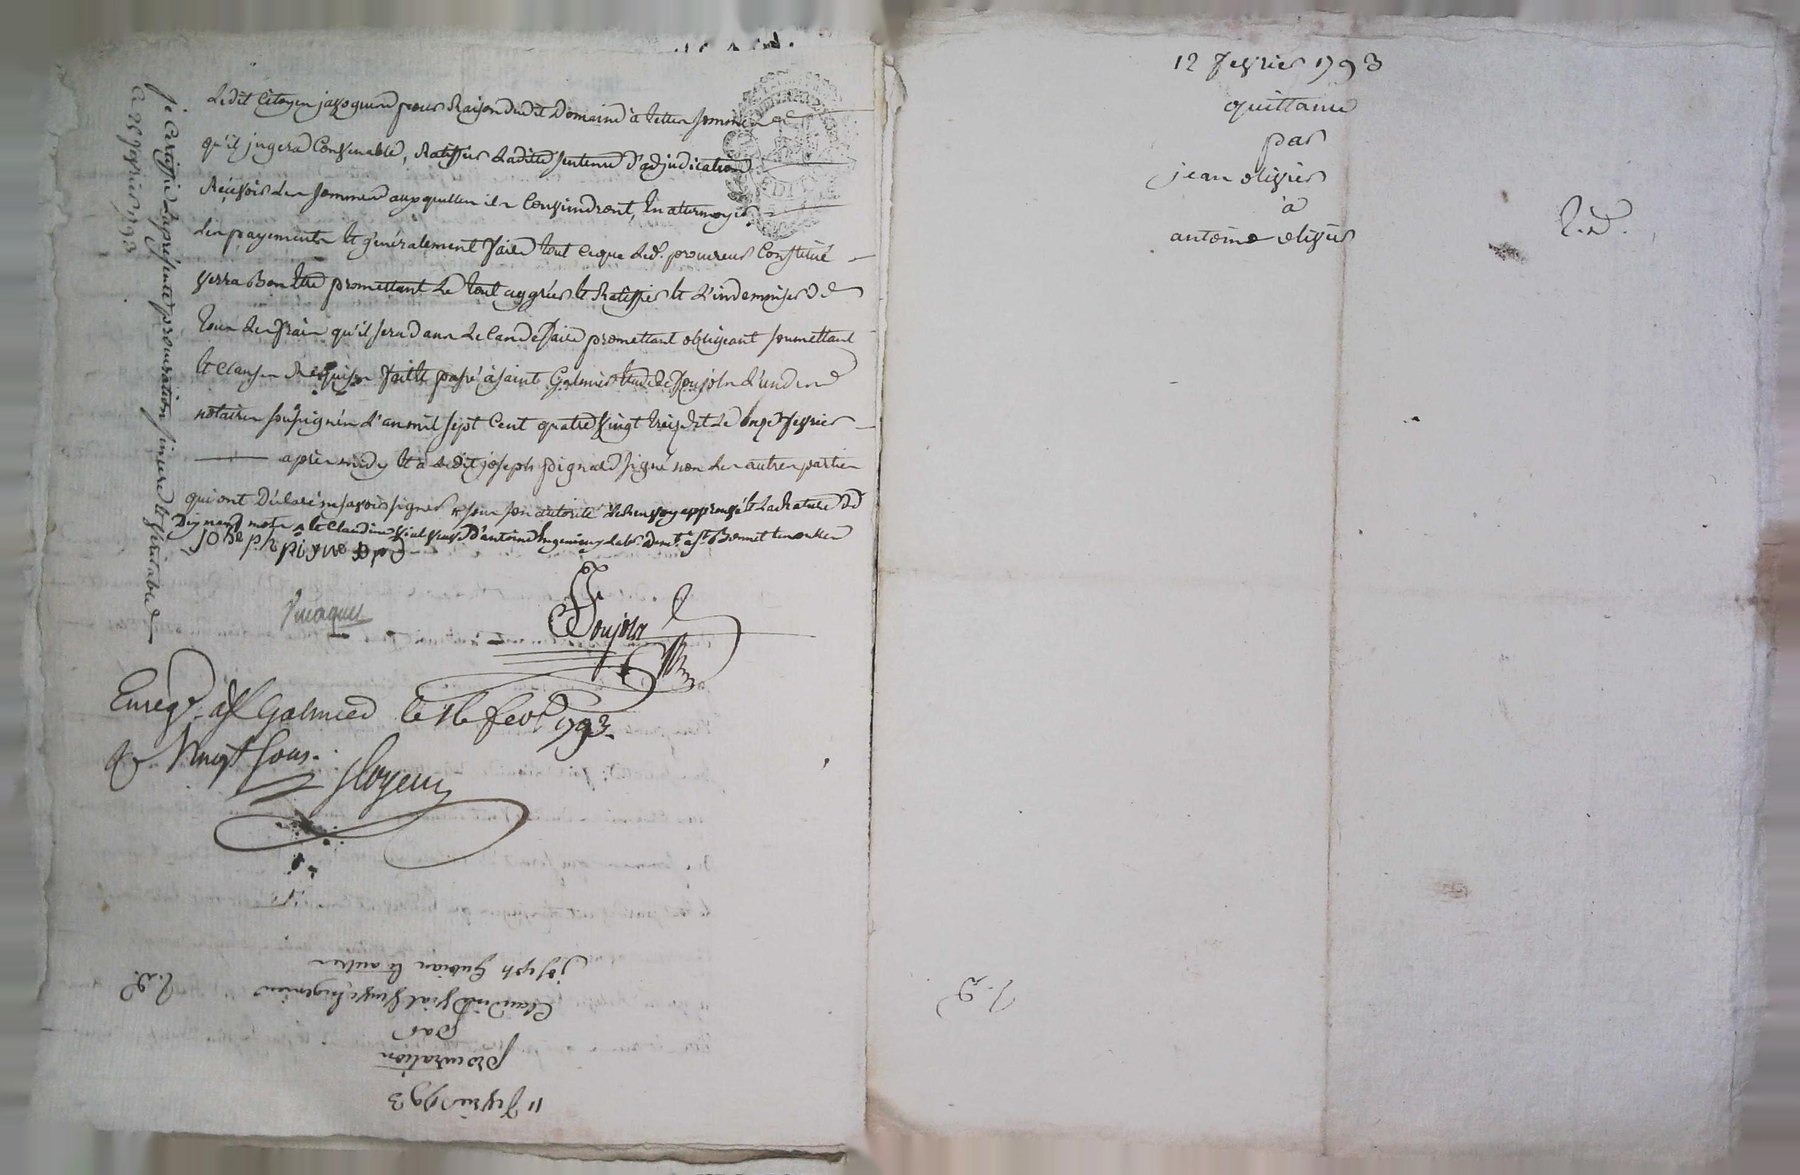 Ledit Citoyen jacquen pour Raison dudit Domaine à telles sommes
qu'il jugera Convenable, Ratiffier Ladite sentence d'adjudication
Recevoir les sommes auxquelles ils Conviendront, En atermoyer
les payements Et généralement faire tout ce que led. procureur Constitué
verra Bon Etre promettant Le tout aggréer Et Ratiffier Et L'indemniser de
tous les frais qu'il sera dans Le Cas de faire promettant obligeant soumettant
Et Clauses Requises fait Et passé à saint Galmier Etude de Poujols L'un des
notaires soussignés L'an mil sept Cent quatre vingt treize Et Le onze fevrier
après midy Et a Ledit joseph pignard signé non les autres parties
qui ont Déclaré ne savoir signer
Et Claudine vial veuve d'antoine
joseph pignard
Poujols
Enreg. à St Galmier le 16 fevr. 1793.
Vingt sous.
je Certiffie La présente procuration sincere Et véritable
Ce 25 fevrier 1793
11 fevrier 1793
procuration
par
Claudine vial veuve
joseph Et autres
12 fevrier 1793
quittance
par
jean olivier
à
antoine olivier